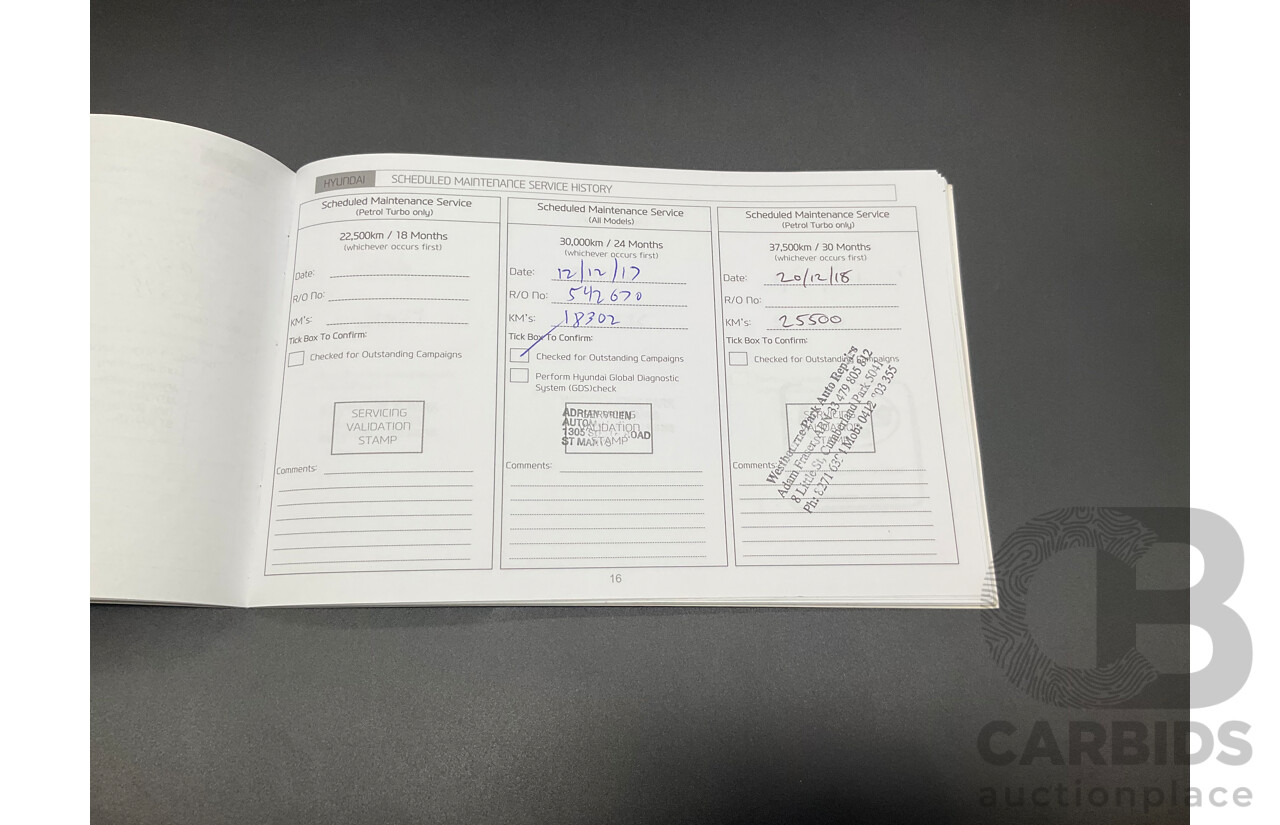 HYUNDAI SCHEDULED MAINTENANCE SERVICE HISTORY
Scheduled Maintenance Service
(Petrol Turbo only)
22,500km / 18 Months
(whichever occurs first)
Date:
R/O No:
KM's:
Tick Box To Confirm:
Checked for Outstanding Campaigns
SERVICING
VALIDATION
STAMP
Comments:
Scheduled Maintenance Service
(All Models)
30,000km / 24 Months
(whichever occurs first)
Date: 12/12/17
R/O No: 542670
KM's: 18302
Tick Box To Confirm:
Checked for Outstanding Campaigns
Perform Hyundai Global Diagnostic
System (GDS)check
ADRIAN BRIEN
AUTOM
1305 ROAD
ST MARYS
VALIDATION
STAMP
Comments:
Scheduled Maintenance Service
(Petrol Turbo only)
37,500km / 30 Months
(whichever occurs first)
Date: 20/12/18
R/O No:
KM's: 25500
Tick Box To Confirm:
Checked for Outstanding Campaigns
Westbourne Park Auto Repairs
Adam Fraser ABN 33 479 805 812
8 Little St, Cumberland Park 5041
Ph: 8271 Mob: 0412 355
Comments:
16
CB
CARBIDS
auctionplace